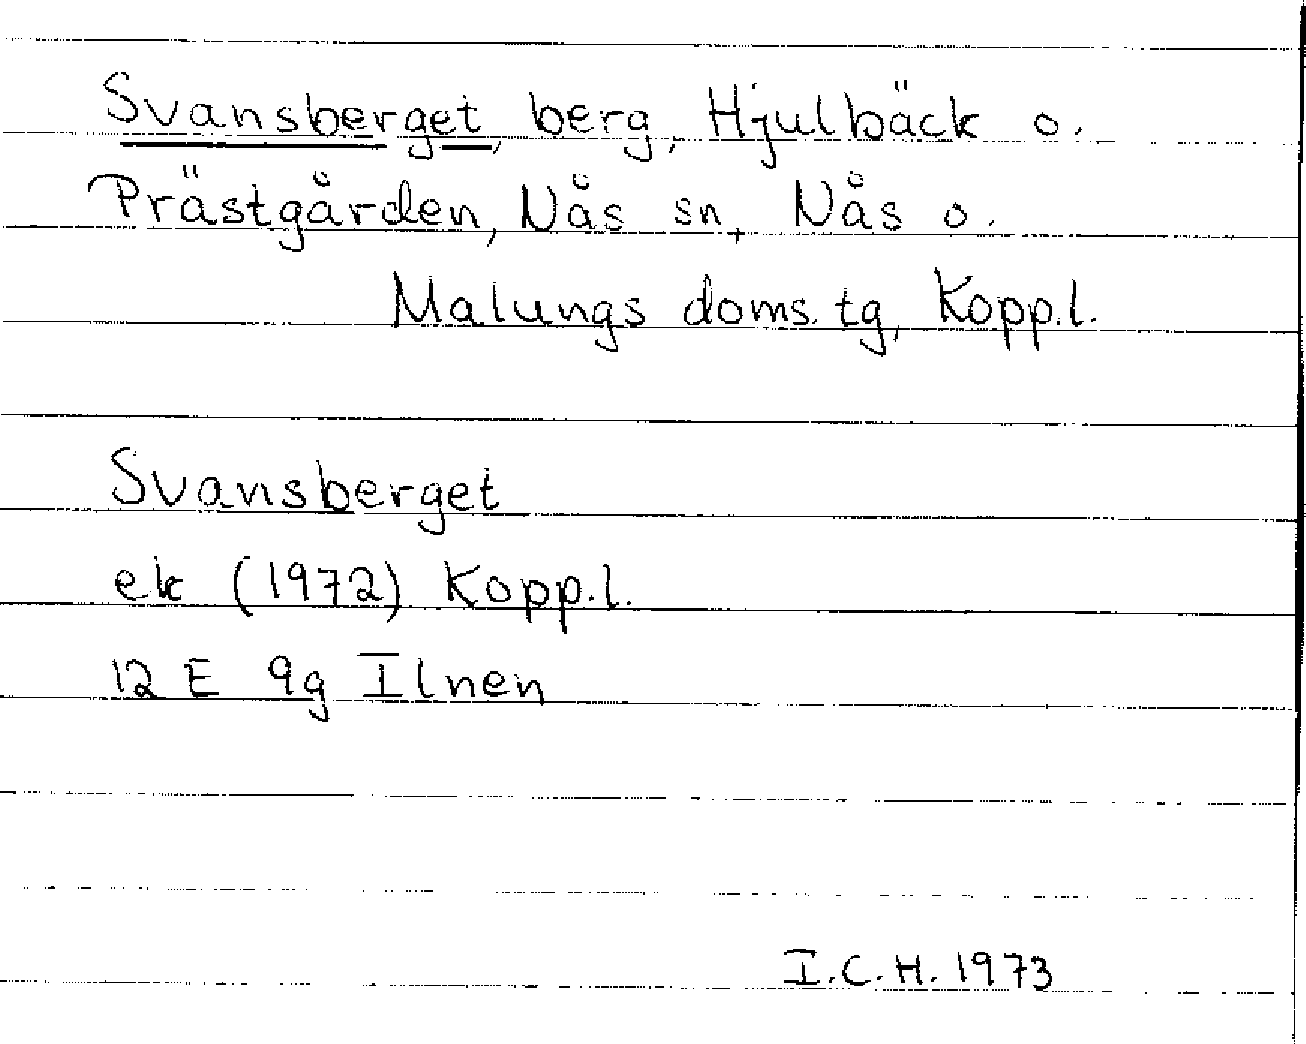 Svansberget, berg, Hjulbäck o.
Prästgården, Nås sn, Nås o.
Malungs doms. tg, Kopp.l.
Svansberget
ek (1972) Kopp.l.
12 E 9g Ilnen
I.C.H. 1973